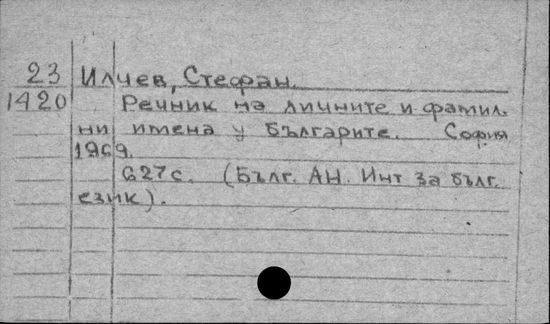 23 Илчев, Стефан.
1420 Речник на личните и фамил.
ни имена у българите. София
1969.
627 с. (Бълг. АН. Инт за бълг.
език).